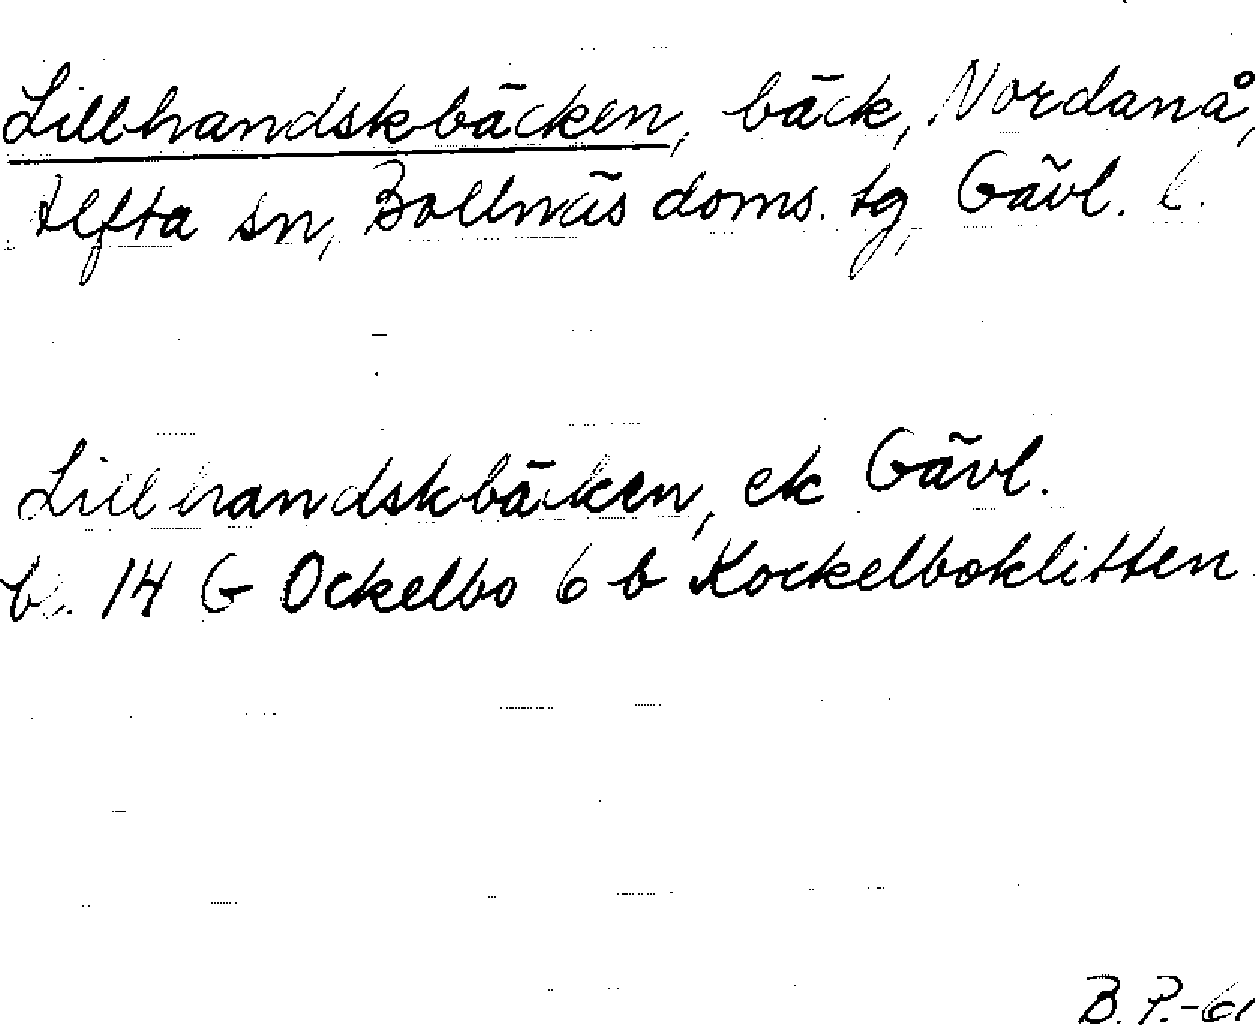 Lillhandskbäcken, bäck, Nordanå,
Alfta sn, Bollnäs doms. tg, Gävl. l.
Lillhandskbäcken, ek Gävl.
bl. 14 G Ockelbo 6 b Kockelboklitten
B. P.-61